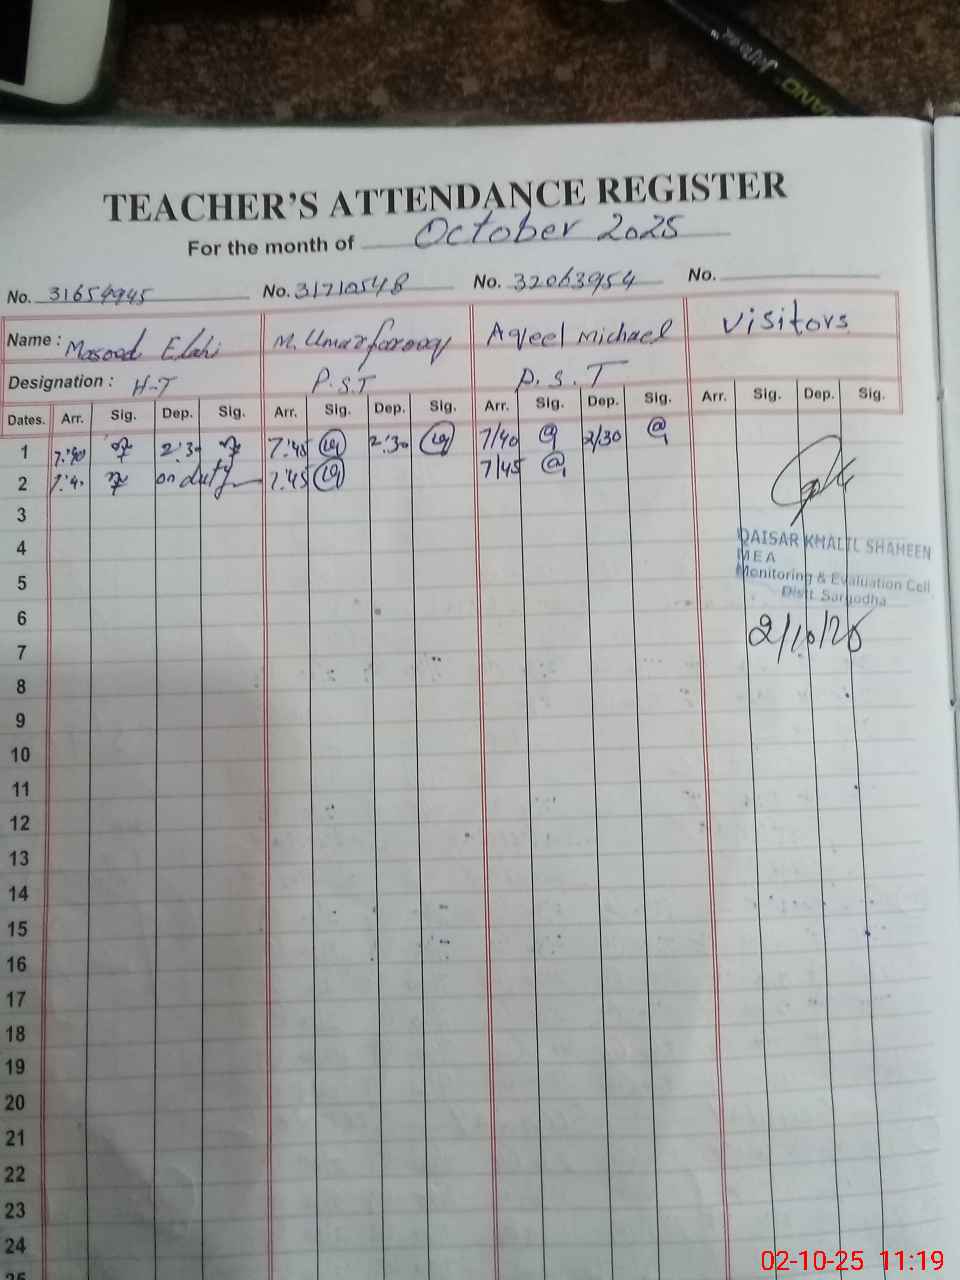 TEACHER'S ATTENDANCE REGISTER
For the month of October 2025
No. 31654945 No. 31710548 No. 32063954 No.
Name : Masood Elahi M. Umar farooq Aqeel michael Visitors
Designation : H-T P.S.T P.S.T
Dates. Arr. Sig. Dep. Sig. Arr. Sig. Dep. Sig. Arr. Sig. Dep. Sig. Arr. Sig. Dep. Sig.
1 7:40 2:30 7:45 2:30 7/40 2/30
2 7:40 on duty 7:45 7/45
3
4
QAISAR KHALIL SHAHEEN
MEA
Monitoring & Evaluation Cell
Distt. Sargodha
5
6
2/10/25
7
8
9
10
11
12
13
14
15
16
17
18
19
20
21
22
23
24
25
02-10-25 11:19